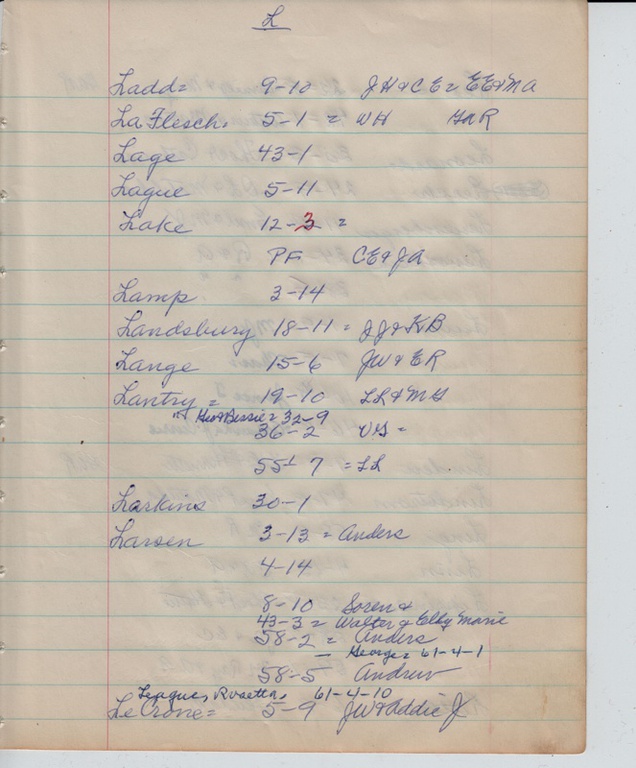 L
Ladd = 9-10 JH & CE = EE & MA
La Flesch = 5-1 = WH
Lage 43-1
Lague 5-11
Lake 12-3 =
PF CE & JA
Lamp 3-14
Landsbury 18-11 = JJ & KB
Lange 15-6 JW & ER
Lantry = 19-10 LL & MG
" & Bessie = 32-9
36-2 VG =
55-7 = LL
Larkins 30-1
Larsen 3-13 = Anders
4-14
8-10 Soren &
43-3 = Walter & Marie
58-2 = Anders
- George = 61-4-1
58-5 Andrew
League, Rosetta, 61-4-10
Le Crone = 5-9 JW & Addie J